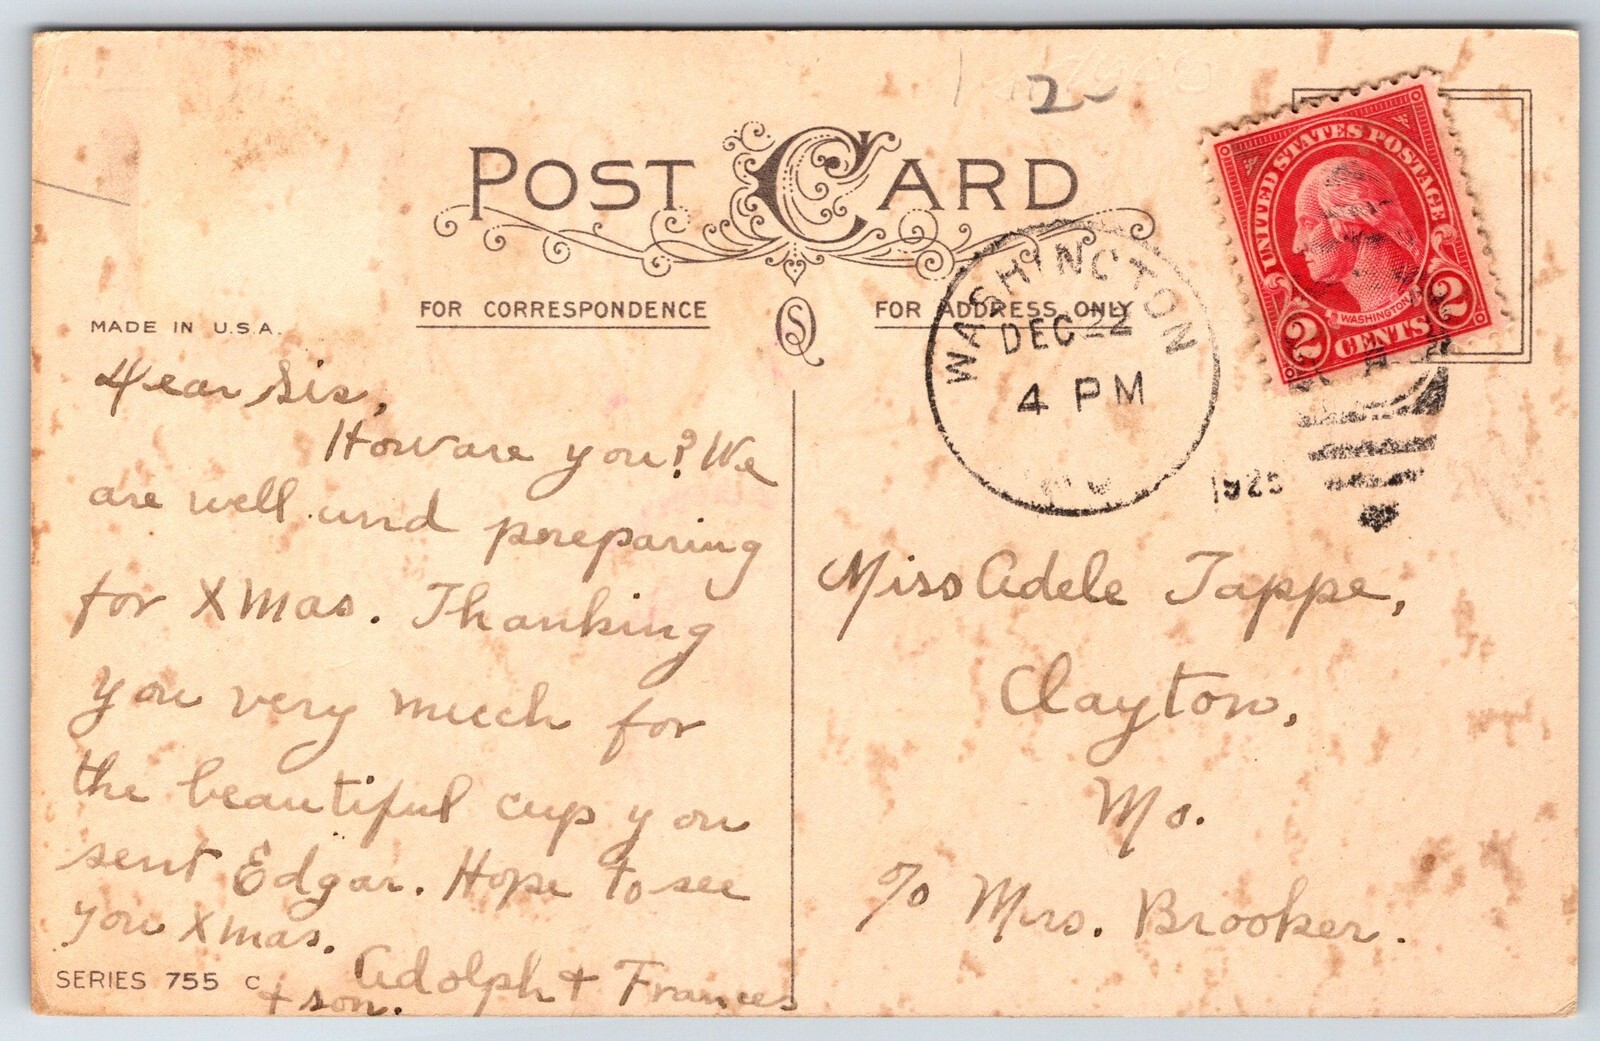 2
POST CARD
UNITED STATES POSTAGE
WASHINGTON
2 CENTS 2
FOR CORRESPONDENCE
FOR ADDRESS ONLY
SQ
MADE IN U.S.A.
WASHINGTON
DEC 22
4 PM
MO
Dear Sis,
How are you? We
are well and preparing
for XMas. Thanking
you very much for
the beautiful cup you
sent Edgar. Hope to see
you Xmas.
Adolph + Frances
+ son.
SERIES 755 C
Miss Adele Tappe,
Clayton,
Mo.
% Mrs. Brooker.